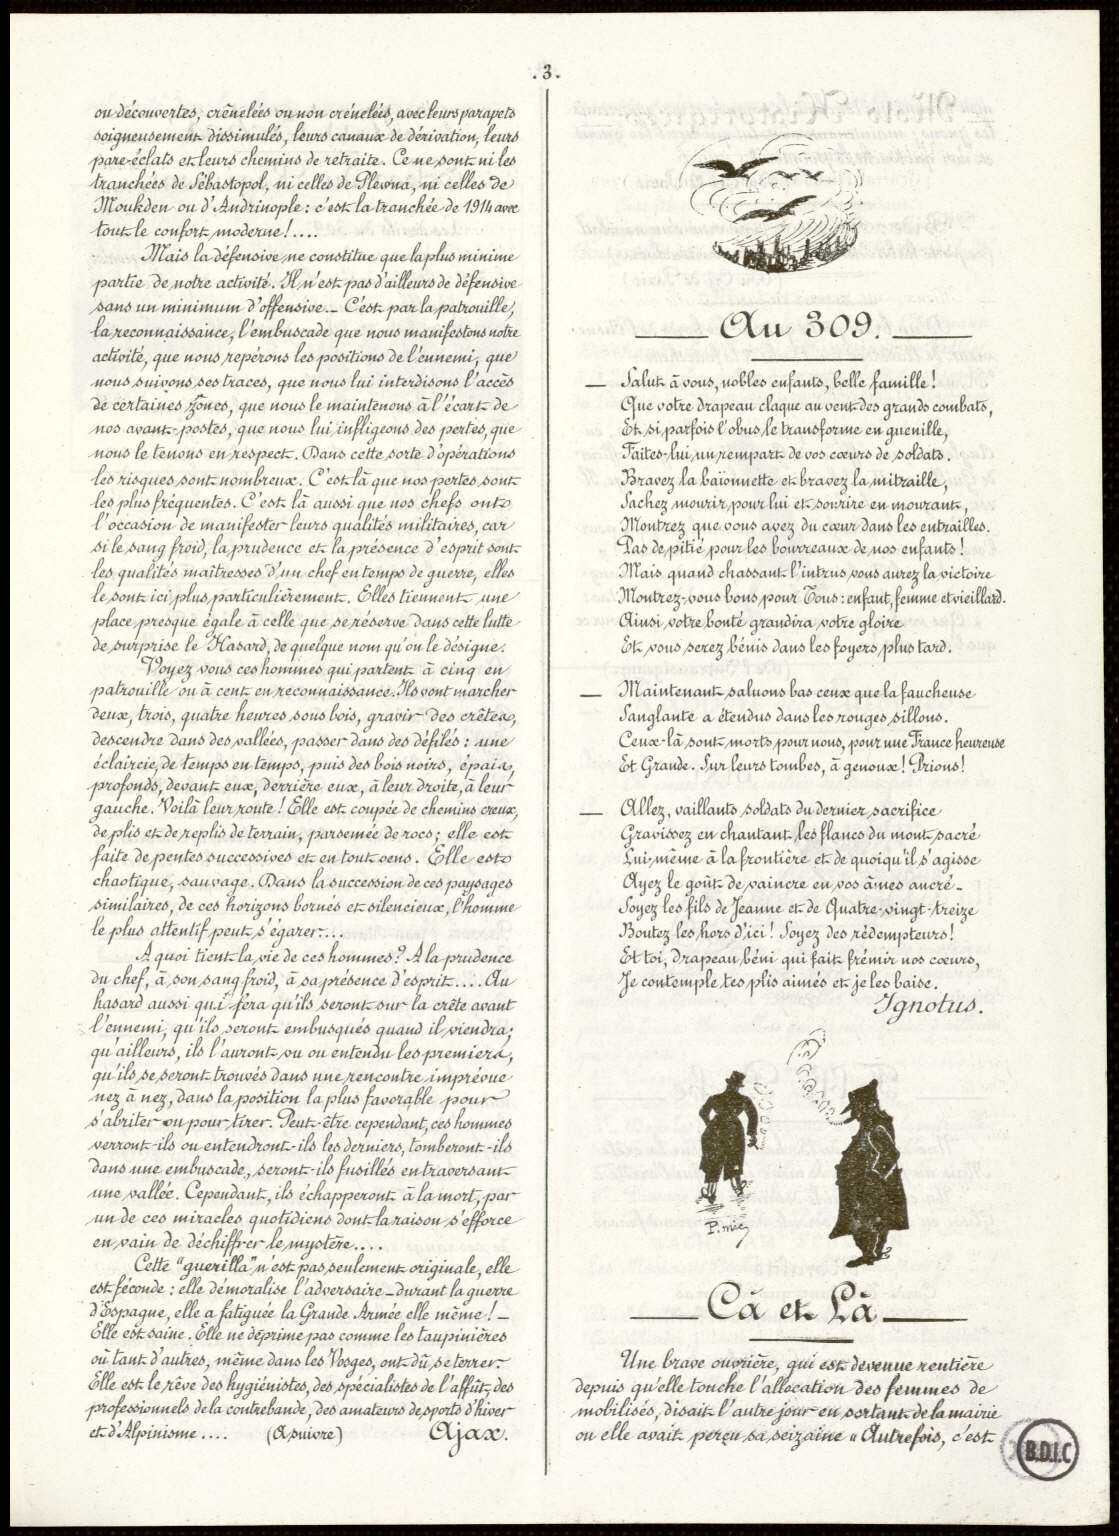 . 3 .
ou découvertes, crênelées ou non crénelées, avec leurs parapets
soigneusement dissimulés, leurs canaux de dérivation, leurs
pare-éclats et leurs chemins de retraite. Ce ne sont ni les
tranchées de Sébastopol, ni celles de Plewna, ni celles de
Moukden ou d'Andrinople : c'est la tranchée de 1914 avec
tout le confort moderne !....
Mais la défensive ne constitue que la plus minime
partie de notre activité. Il n'est pas d'ailleurs de défensive
sans un minimum d'offensive._ C'est par la patrouille,
la reconnaissance, l'embuscade que nous manifestons notre
activité, que nous repérons les positions de l'ennemi, que
nous suivons ses traces, que nous lui interdisons l'accès
de certaines zones, que nous le maintenons à l'écart de
nos avant-postes, que nous lui infligeons des pertes, que
nous le tenons en respect. Dans cette sorte d'opérations
les risques sont nombreux. C'est là que nos pertes sont
les plus fréquentes. C'est là aussi que nos chefs ont
l'occasion de manifester leurs qualités militaires, car
si le sang froid, la prudence et la présence d'esprit sont
les qualités maîtresses d'un chef en temps de guerre, elles
le sont ici plus particulièrement. Elles tiennent une
place presque égale à celle que se réserve dans cette lutte
de surprise le Hasard, de quelque nom qu'on le désigne.
Voyez vous ces hommes qui partent à cinq en
patrouille ou à cent en reconnaissance. Ils vont marcher
deux, trois, quatre heures sous bois, gravir des crêtes,
descendre dans des vallées, passer dans des défilés : une
éclaircie, de temps en temps, puis des bois noirs, épais,
profonds, devant eux, derrière eux, à leur droite, à leur
gauche. Voilà leur route ! Elle est coupée de chemins creux,
de plis et de replis de terrain, parsemée de rocs ; elle est
faite de pentes successives et en tout sens. Elle est
chaotique, sauvage. Dans la succession de ces paysages
similaires, de ces horizons bornés et silencieux, l'homme
le plus attentif peut s'égarer...
A quoi tient la vie de ces hommes ? A la prudence
du chef, à son sang froid, à sa présence d'esprit.... Au
hasard aussi qui fera qu'ils seront sur la crête avant
l'ennemi, qu'ils seront embusqués quand il viendra ;
qu'ailleurs, ils l'auront vu ou entendu les premiers,
qu'ils se seront trouvés dans une rencontre imprévue
nez à nez, dans la position la plus favorable pour
s'abriter ou pour tirer. Peut-être cependant, ces hommes
verront-ils ou entendront-ils les derniers, tomberont-ils
dans une embuscade, seront-ils fusillés en traversant
une vallée. Cependant, ils échapperont à la mort, par
un de ces miracles quotidiens dont la raison s'efforce
en vain de déchiffrer le mystère....
Cette "guerilla", n'est pas seulement originale, elle
est féconde : elle démoralise l'adversaire _ durant la guerre
d'Espagne, elle a fatiguée la Grande Armée elle même ! _
Elle est saine. Elle ne déprime pas comme les taupinières
où tant d'autres, même dans les Vosges, ont dû se terrer.
Elle est le rêve des hygiénistes, des spécialistes de l'affût, des
professionnels de la contrebande, des amateurs de sports d'hiver
et d'Alpinisme .... (A suivre) Ajax.
Au 309.
_ Salut à vous, nobles enfants, belle famille !
Que votre drapeau claque au vent des grands combats,
Et si parfois l'obus le transforme en guenille,
Faites-lui un rempart de vos cœurs de soldats.
Bravez la baïonnette et bravez la mitraille,
Sachez mourir pour lui et sourire en mourant,
Montrez que vous avez du cœur dans les entrailles.
Pas de pitié pour les bourreaux de nos enfants !
Mais quand chassant l'intrus vous aurez la victoire
Montrez-vous bons pour Tous : enfant, femme et vieillard.
Ainsi votre bonté grandira votre gloire
Et vous serez bénis dans les foyers plus tard.
_ Maintenant saluons bas ceux que la faucheuse
Sanglante a étendus dans les rouges sillons.
Ceux-là sont morts pour nous, pour une France heureuse
Et Grande. Sur leurs tombes, à genoux ! Prions !
_ Allez, vaillants soldats du dernier sacrifice
Gravissez en chantant les flancs du mont sacré
Lui-même à la frontière et de quoiqu'il s'agisse
Ayez le goût de vaincre en vos âmes ancré _
Soyez les fils de Jeanne et de Quatre-vingt-treize
Boutez les hors d'ici ! Soyez des rédempteurs !
Et toi, drapeau béni qui fait frémir nos cœurs,
Je contemple tes plis aimés et je les baise.
Ignotus.
P. mic
Cà et Là
Une brave ouvrière, qui est devenue rentière
depuis qu'elle touche l'allocation des femmes de
mobilisés, disait l'autre jour en sortant de la mairie
ou elle avait perçu sa seizaine « Autrefois, c'est
B.D.I.C